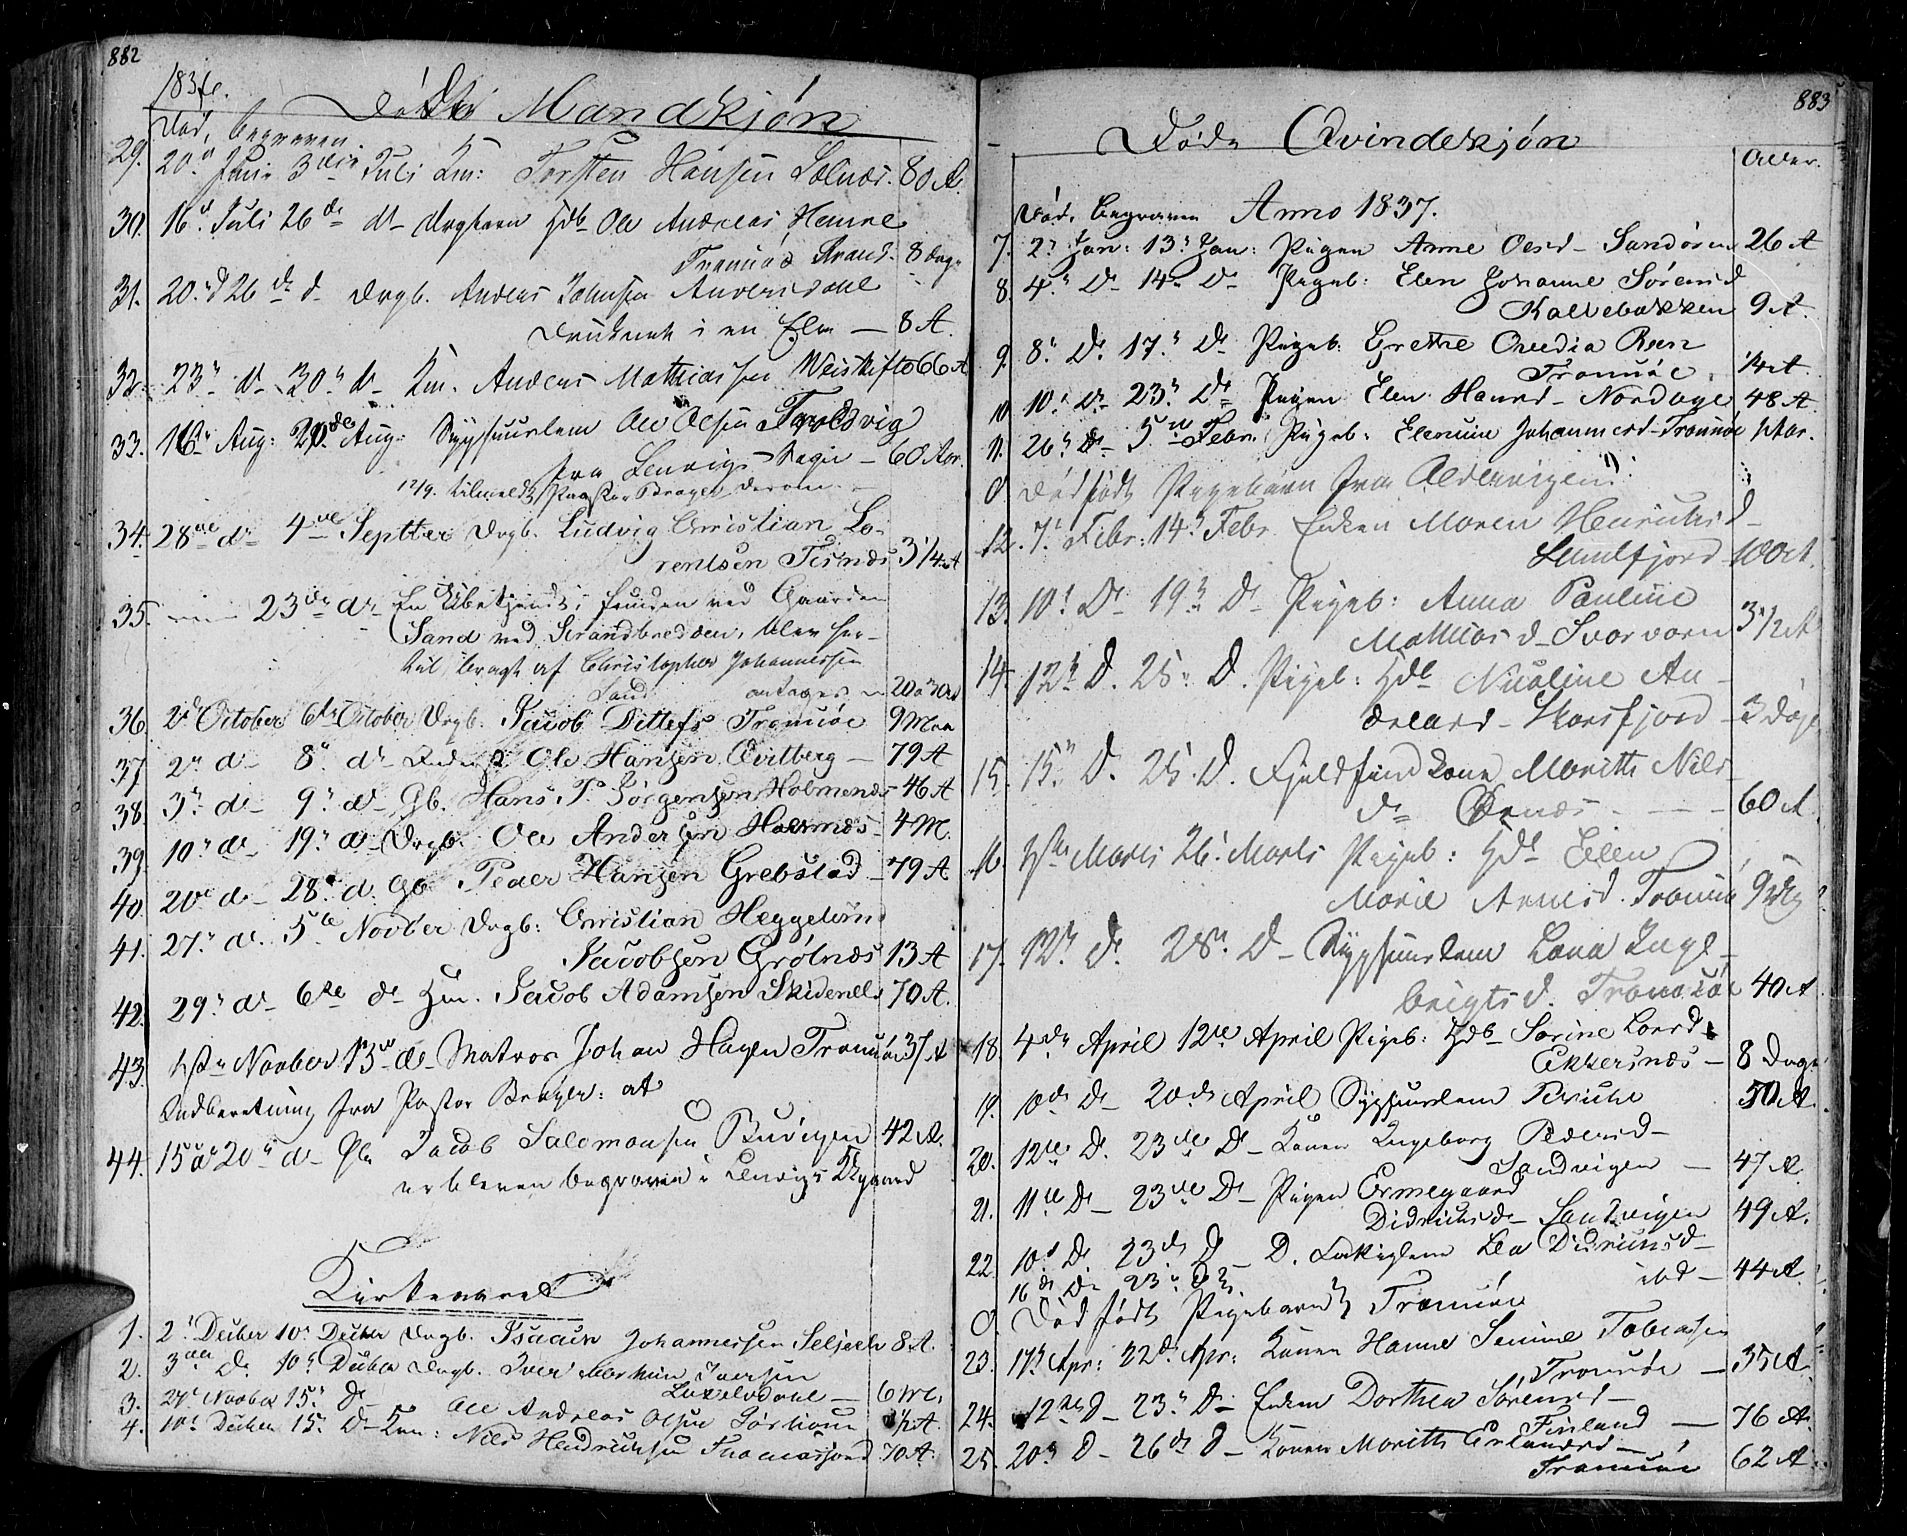 882
1836.
Døde Mandkjøn
Død, begraven.
29. 20de Juni 3die Juli Km: Torsten Hansen Selnæs. 80 A.
30. 16d Juli 26de d– Drgbarn Hdb Ole Andreas Hemre
Tromsøe Sund. 8 Dage
31. 20d 26de d– Drgb. Anders Johnsen Andersdale
Druknet i en Elv — 8 A.
32. 23d– d– 30d– d– Km. Anders Mathiassen Weiskifte 66 A
33. 16d Aug: 20de Aug: Sygehuuslem Ole Olsen Troldsvig
fra Lenvigs Sogn — 60 Aar.
12/9. tilmeldt Pastor Brager derom. —
34. 28de d– 4de Septbr Drgb. Ludvig Christian Lo-
rentsen Tisnæs 3 1/4 A
35. — 23de d– En Ubekjendt, funden ved Gaarden
Sand ved Strandbredden, blev her-
til bragt af Christopher Johannessen
Sand. antages — 20 a 30 A
36. 2d October 6te October Drgb. Jacob Ditlefs Tromsøe 9 Mdr
37. 2d d– 8d d– Ole Hansen Qvitberg — 79 A
38. 3d d– 9d d– Gb. Hans P. Jørgensen Holmenæs 46 A
39. 10d d– 19d d– Drgb. Ole Andersen Holmnæs 4 M.
40. 20de d– 28d d. Gb Peder Hansen Grebstad — 79 A
41. 27d d. 5te Novber Drgb: Christian Heggelund
Jacobsen Grøtnæs 13 A
42. 29d d– 6te d– Hm. Jacob Adamsen Skidenelv 70 A.
43. 1ste Novber 13de d– Matros Johan Hagen Tromsøe 37 A
Indberetning fra Pastor Brager: at
44. 15d 20d d– Gb Jacob Salomonsen Buvigen 42 A.
er bleven begraven i Lenvigs Kgaard
Kirkeaaret
1. 2d Decber 10d Decber Drgb. Isaach Johannessen Seljeelv 8 A.
2. 3die D. 10d Decber Drgb. Iver Iversen
Laxelvdale — 6 M.
3. 24d Novber 15d D– Ole Andreas Olsen 1/2 A.
4. 10d Decber 15d D– Km: Nils Hendrichsen Thomasjord 70 A.
883
Døde Qvindekjøn
Alder.
Død, begraven Anno 1837.
7. 2d Jan: 13d Jan: Pigen Anne Olsd– Sandøren 26 A
8. 4d D– 14d D– Pigeb: Elen Johanne Sørensd
Kallebakken 9 A.
9. 8d D. 17d D– Pigeb. Grethe Ovedia Reen
Tromsøe. 14 A.
10. 10d D– 23d D– Pigen Elen Hansd– Nordbye 48 A.
11. 26d D– 5te Febr: Pigeb. Johannesd– Tromsøe 1 Aar.
0 Dødfødt Pigebarn fra Oldervigen
12. 7d Febr: 14d Febr Enken Maren Henrichsd–
Sandfjord 100 A.
13. 10d D– 19d D– Pigeb: Anna Pauline
Mathiasd– Svarvaren 3 1/2 A
14. 12d D. 25d D. Pigeb: Hdb Nicoline An-
dreasd– Skarsfjord — 3 Dage
15. 15d D. 25d D. Fjeldfind Kone Marithe Nils-
d– — 60 A.
16. 1ste Marts 26d Marts Pigeb: Hdb Elen
Marie Arnesd. Tromsøe 9 Dg
17. 12d D. 28d D– Sygehuuslem Lava Inge-
brigtsd. Tromsøe 40 A
18. 4de April 12te April Pigeb: Hdb Sorine Larsd–
Ekkersnæs — 8 Dage
19. 10de D– 20de April Sygehuuslem 50 A.
20. 12te D. 23de D– Konen Ingeborg Pedersd–
Sandvigen — 47 A.
21. 11te D– 23de D– Pigen Ermegaard
Didrichsd– Sandvigen 49 A.
22. 10d D. 23de D– D. Lea Didrichsd–
ibd — 44 A.
16de D– 23d D–
0. Dødfødt Pigebarn Tromsøe
23. 17d Apr: 22d Apr: Konen Hanne Tobiasen
Tromsøe — 35 A.
24. 12te D– 23d D– Enken Dorthea Sørensd–
Finland — 76 A.
25. 20d D– 26de D– Konen Marithe Erlandsd–
Tromsøe 62 A.